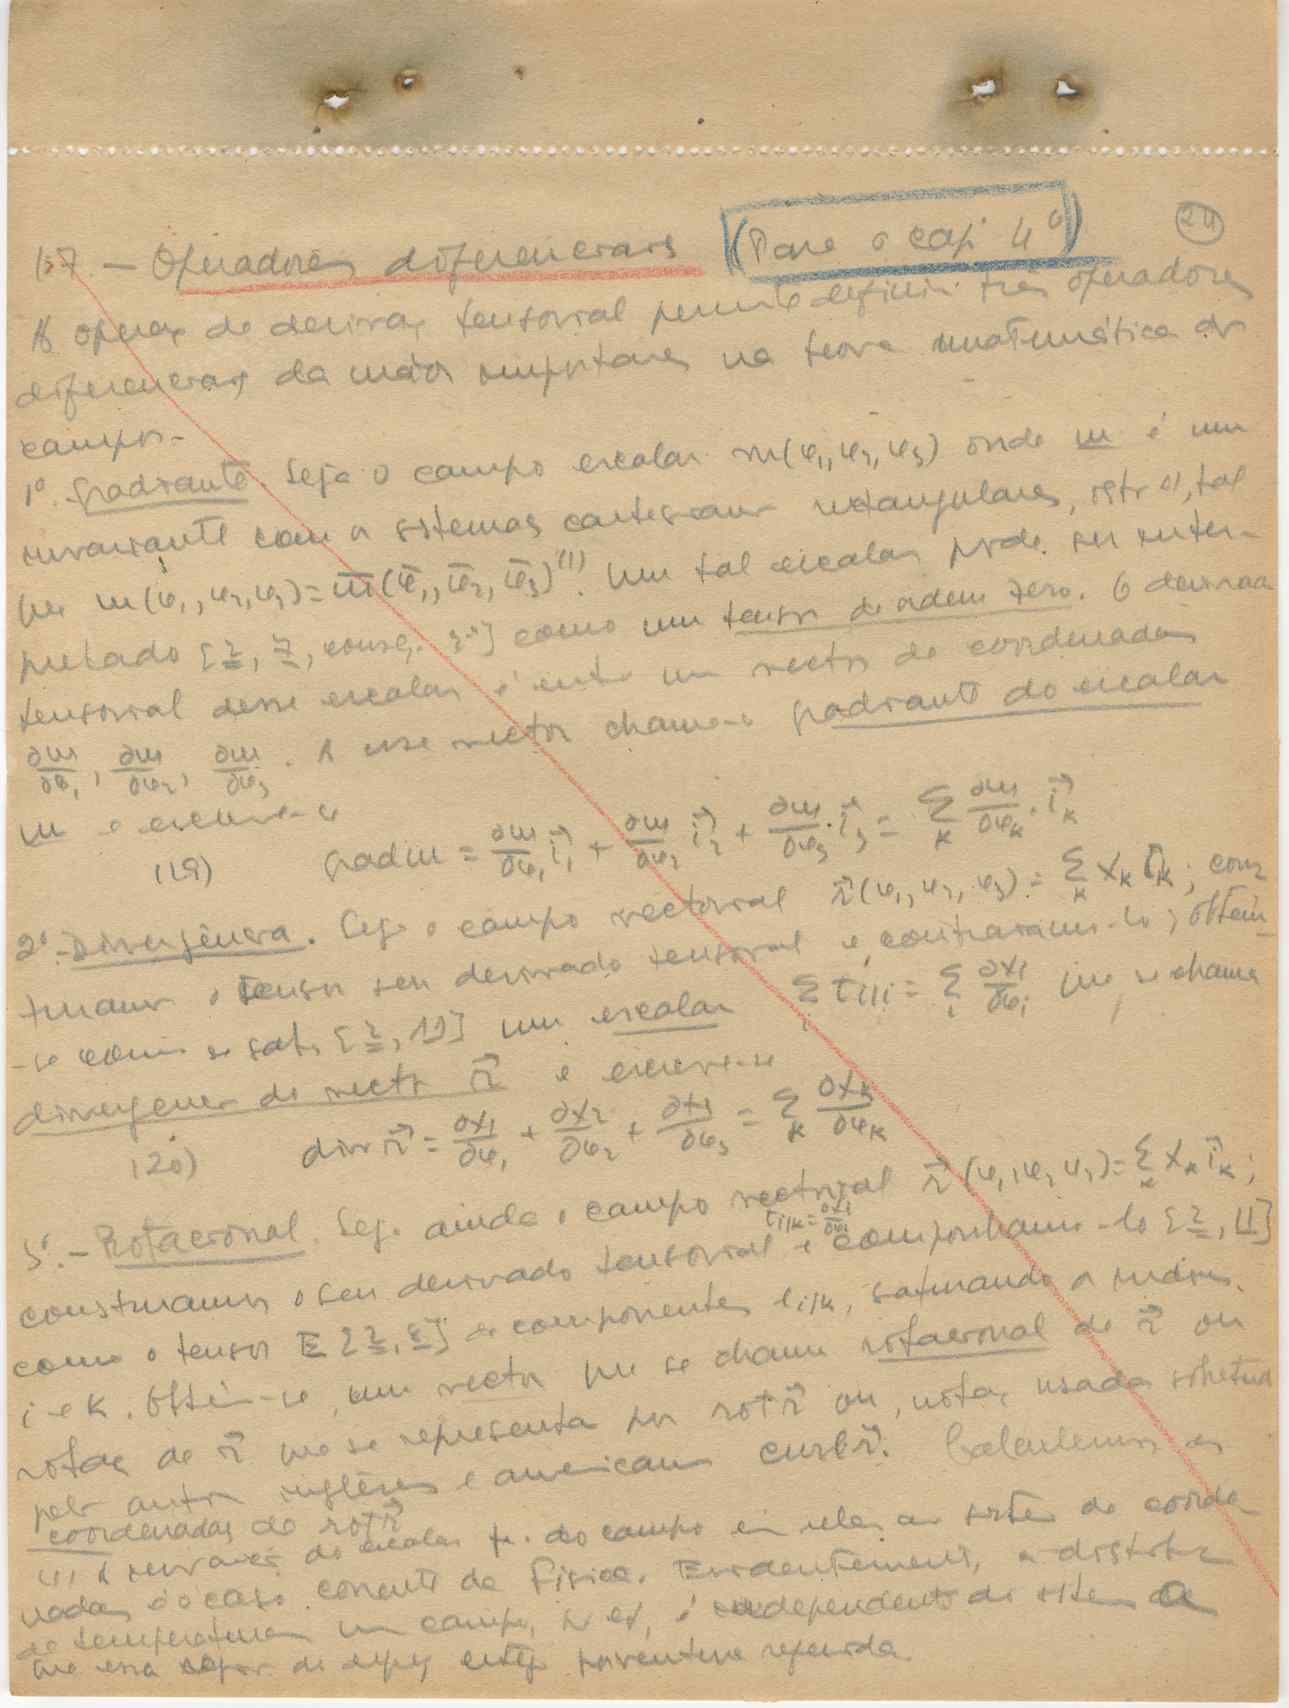 24
17. — Operadores diferenciais (Para o cap. 4º)
A operaç. de derivaç. tensorial permite definir três operadores
diferenciais da maior importância na teoria matemática dos
campos.
1º. Gradiante. Seja o campo escalar m(φ₁, φ₂, φ₃) onde m é um
invariante com os sistemas cartesianos rectangulares, isto é, tal
que m(φ₁, φ₂, φ₃) = m̄(φ̄₁, φ̄₂, φ̄₃)⁽¹⁾. Um tal escalar pode ser inter-
pretado [2, 7, conseq. 2ª] como um tensor de ordem zero. O derivado
tensorial desse escalar é então um vector de coordenadas
∂m/∂φ₁, ∂m/∂φ₂, ∂m/∂φ₃. A esse vector chama-se gradiante do escalar
m e escreve-se
(19) grad m = ∂m/∂φ₁ i⃗₁ + ∂m/∂φ₂ i⃗₂ + ∂m/∂φ₃ · i⃗₃ = Σₖ ∂m/∂φₖ · i⃗ₖ
2º.- Divergência. Seja o campo vectorial r⃗(φ₁, φ₂, φ₃) = Σₖ Xₖ i⃗ₖ; cons-
truamos o tensor seu derivado tensorial e contraiamo-lo; obtém-
-se como se sabe [2, 12] um escalar Σᵢ tᵢ|ᵢ = Σᵢ ∂Xᵢ/∂φᵢ que se chama
divergência do vector r⃗ e escreve-se
(20) div r⃗ = ∂X₁/∂φ₁ + ∂X₂/∂φ₂ + ∂X₃/∂φ₃ = Σₖ ∂Xₖ/∂φₖ
3º.- Rotacional Seja ainda o campo vectorial r⃗(φ₁, φ₂, φ₃) = Σₖ Xₖ i⃗ₖ;
construamos o seu derivado tensorial tᵢ|ₖ = ∂Xᵢ/∂φₖ e componhamo-lo [2, 11]
como o tensor E [2, 8] de componentes tᵢ|ₖ, saturando os índices
i e k. Obtém-se um vector que se chama rotacional de r⃗ ou
rotaç. de r⃗ que se representa por rot r⃗ ou, notaç. usada sobretudo
pelos autores ingleses e americanos curl r⃗. Calculemos as
coordenadas de rot r⃗
(1) A invariância do escalar f. do campo em relaç. aos sistemas de coorde-
nadas é o caso corrente da Física. Evidentemente, a distribuiç.
de temperaturas num campo, p. ex., é independente do sistema a
que essa região do espaç. esteja porventura referida.